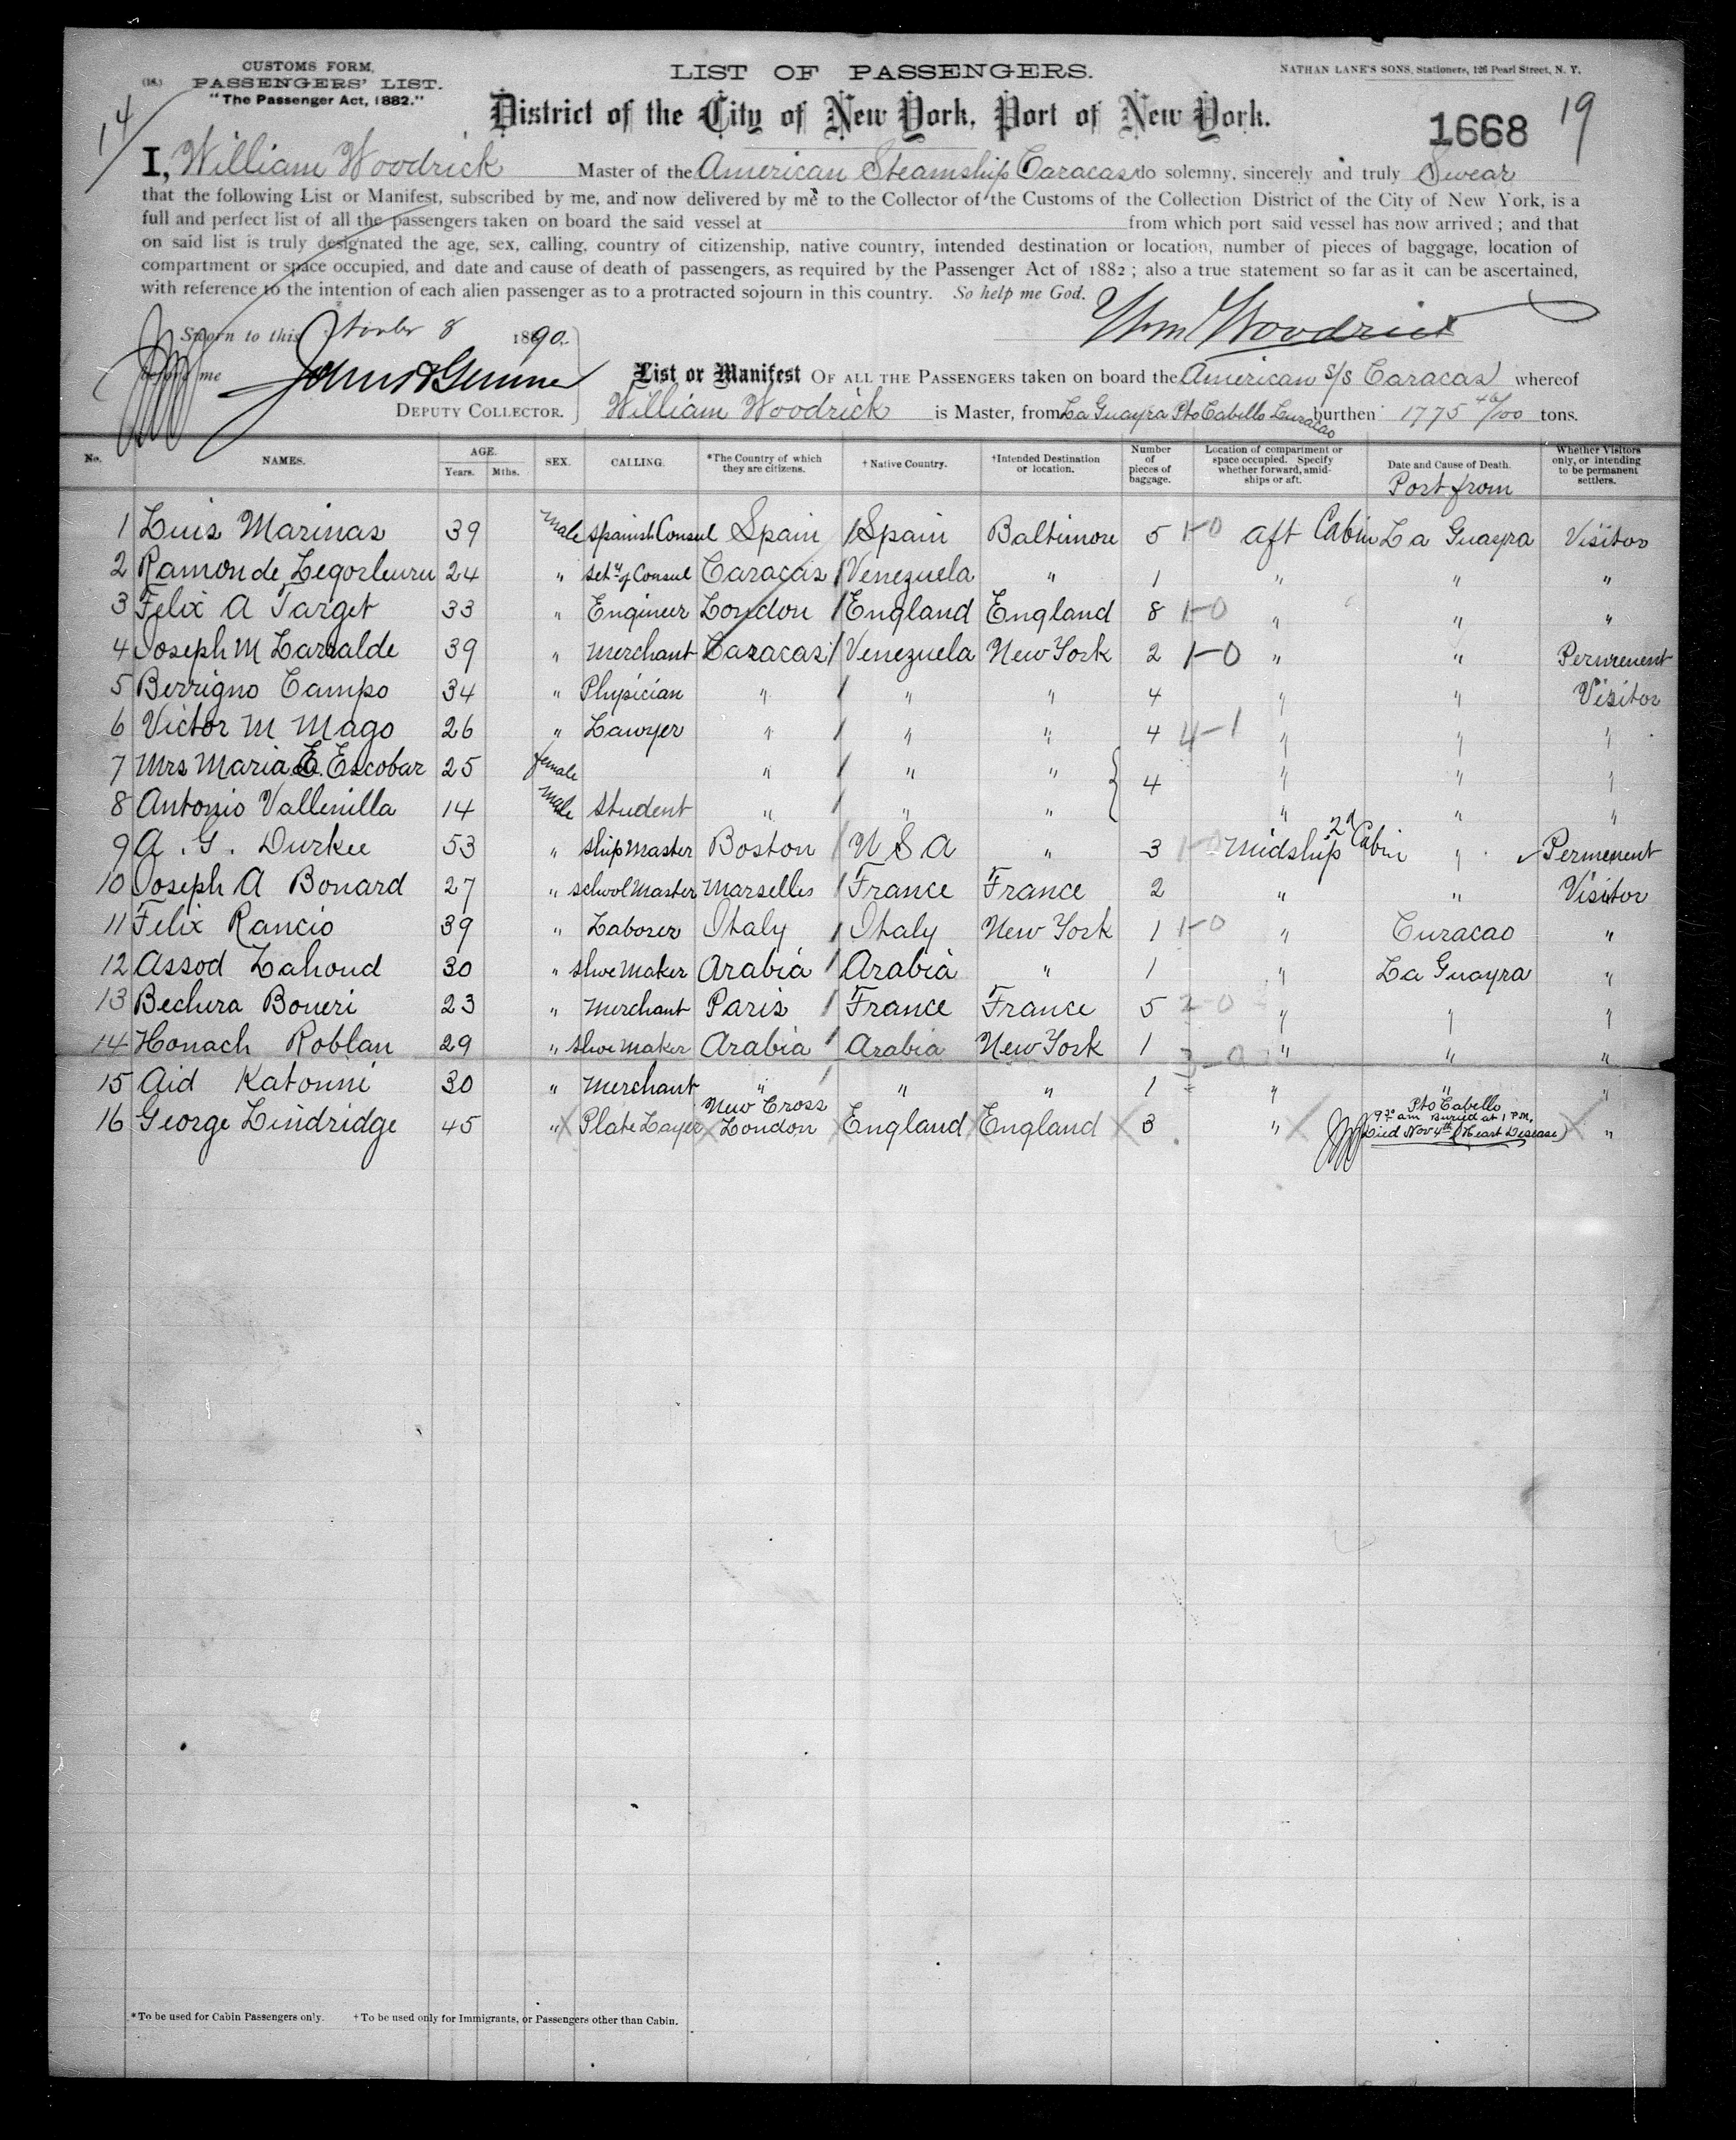 CUSTOMS FORM,
(18.) PASSENGERS' LIST.
"The Passenger Act, 1882."
LIST OF PASSENGERS.
NATHAN LANE'S SONS, Stationers, 126 Pearl Street, N. Y.
District of the City of New York, Port of New York.
14 1668 19
I, William Woodrick Master of the American Steamship Caracas do solemny, sincerely and truly Swear
that the following List or Manifest, subscribed by me, and now delivered by me to the Collector of the Customs of the Collection District of the City of New York, is a
full and perfect list of all the passengers taken on board the said vessel at from which port said vessel has now arrived ; and that
on said list is truly designated the age, sex, calling, country of citizenship, native country, intended destination or location, number of pieces of baggage, location of
compartment or space occupied, and date and cause of death of passengers, as required by the Passenger Act of 1882 ; also a true statement so far as it can be ascertained,
with reference to the intention of each alien passenger as to a protracted sojourn in this country. So help me God.
Wm Woodrick
Sworn to this 8 1890.
before me
DEPUTY COLLECTOR.
List or Manifest OF ALL THE PASSENGERS taken on board the American S/S Caracas whereof
William Woodrick is Master, from La Guayra Pto Cabello Curacao burthen 1775 46/100 tons.
No. NAMES. AGE. Years. Mths. SEX. CALLING. *The Country of which they are citizens. † Native Country. †Intended Destination or location. Number of pieces of baggage. Location of compartment or space occupied. Specify whether forward, amidships or aft. Date and Cause of Death. Port from Whether Visitors only, or intending to be permanent settlers.
1 Luis Marinas 39 male Spanish Consul Spain / Spain Baltimore 5 1-0 aft Cabin La Guayra Visitor
2 Ramon de Legorleuru 24 " Sety of Consul Caracas / Venezuela " 1 " " "
3 Felix A Target 33 " Engineer London / England England 8 1-0 " " "
4 Joseph M Larralde 39 " Merchant Caracas / Venezuela New York 2 1-0 " " Permenent
5 Berrigno Campo 34 " Physician " / " " 4 " " Visitor
6 Victor M Mago 26 " Lawyer " / " " 4 4-1 " " "
7 Mrs Maria E. Escobar 25 female " / " " { 4 " " "
8 Antonio Vallenilla 14 male Student " / " " " " "
9 A. G. Durkee 53 " Ship Master Boston / U S A " 3 1-0 Midship 2d Cabin " Permenent
10 Joseph A Bonard 27 " School Master Marselles / France France 2 " " Visitor
11 Felix Rancio 39 " Laborer Italy / Italy New York 1 1-0 " Curacao "
12 Assod Lahoud 30 " Shoe Maker Arabia / Arabia " 1 " La Guayra "
13 Bechera Boueri 23 " Merchant Paris / France France 5 2-0 " " "
14 Honach Roblan 29 " Shoe Maker Arabia / Arabia New York 1 3-0 " " "
15 Aid Katouni 30 " Merchant " / " " 1 " " "
16 George Lindridge 45 " Plate Layer New Cross London England England 3 " Pto Cabello 9 30 am Buried at 1 P.M. Died Nov 4th (Heart Disease) "
*To be used for Cabin Passengers only. †To be used only for Immigrants, or Passengers other than Cabin.